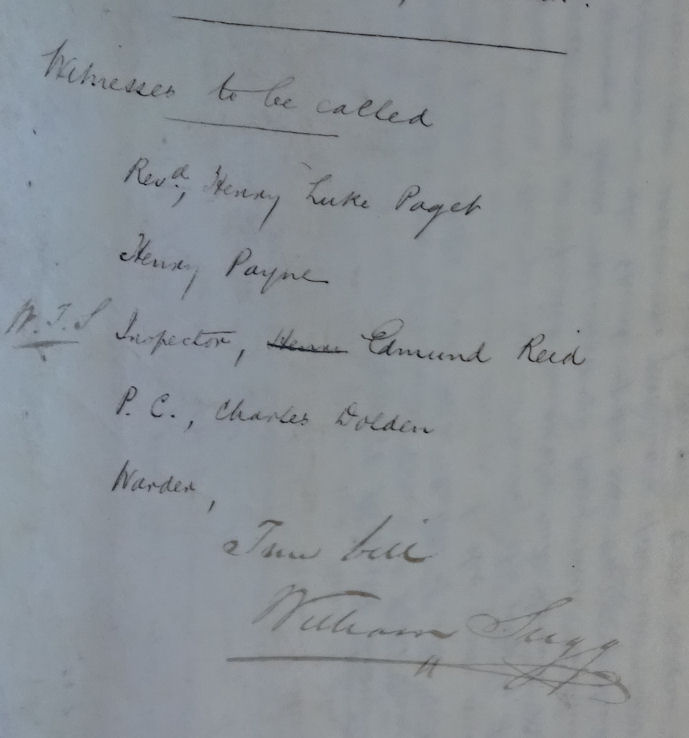 Witnesses to be called
Rev.d, Henry Luke Paget
Henry Payne
W.T.S Inspector, Edmund Reid
P.C., Charles Dolden
Warder,
True bill
William Sugg